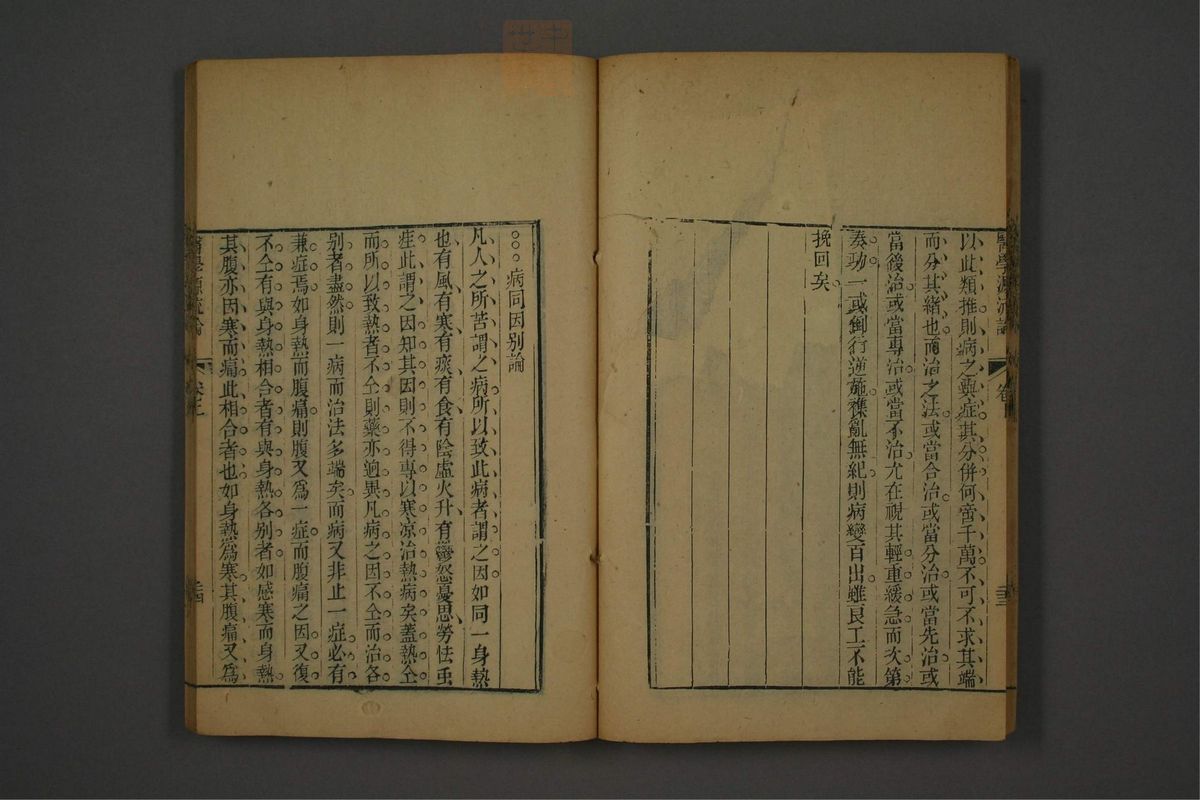 醫學源流論
卷上
以此類推則病之與症其分併何啻千萬不可不求其端
而分其緒也而治之法或當合治或當分治或當先治或
當後治或當專治或當不治尤在視其輕重緩急而次第
奏功一或倒行逆施襍亂無紀則病變百出雖良工不能
挽回矣
病同因别論
凡人之所苦謂之病所以致此病者謂之因如同一身熱
也有風有寒有痰有食有陰虛火升有鬱怒憂思勞怯蟲
疰此謂之因知其因則不得專以寒凉治熱病矣葢熱仝
而所以致熱者不仝則藥亦逈異凡病之因不仝而治各
别者盡然則一病而治法多端矣而病又非止一症必有
兼症焉如身熱而腹痛則腹又爲一症而腹痛之因又復
不仝有與身熱相合者有與身熱各别者如感寒而身熱
其腹亦因寒而痛此相合者也如身熱爲寒其腹痛又爲
醫學源流論
卷上